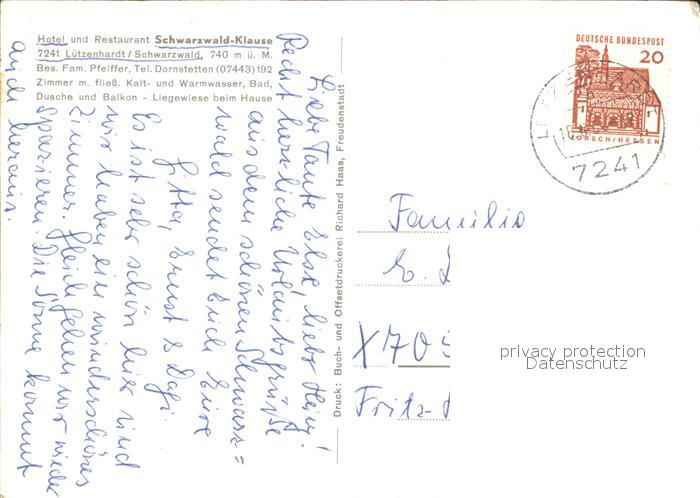 Hotel und Restaurant Schwarzwald-Klause
7241 Lützenhardt/Schwarzwald, 740 m ü. M.
Bes. Fam. Pfeiffer, Tel. Dornstetten (07443) 192
Zimmer m. fließ. Kalt- und Warmwasser, Bad,
Dusche und Balkon - Liegewiese beim Hause
Liebe Tante Else, lieber Heinz!
Recht herzliche Urlaubsgrüße
aus dem schönen Schwarz=
wald sendet Euch Eure
Jutta, Ernst & Dagi.
Es ist sehr schön hier und
wir haben ein wunderschönes
Zimmer. Gleich gehen wir wieder
spazieren. Die Sonne kommt
auch heraus.
Druck: Buch- und Offsetdruckerei Richard Haas, Freudenstadt
DEUTSCHE BUNDESPOST
20
LORSCH/HESSEN
7241
Familie
E.
X705
Fritz-
privacy protection
Datenschutz